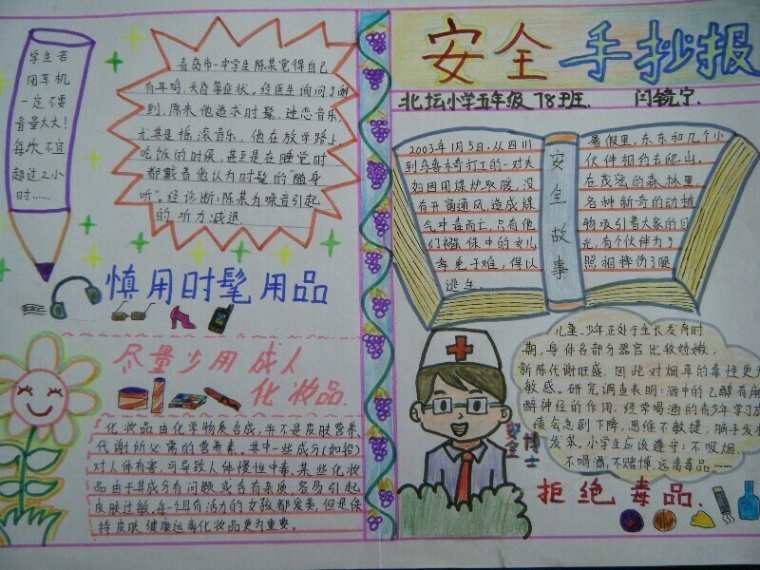 安全手抄报
北坛小学五年级78班. 闫镜宁.
学生若
用耳机
一定不要
音量太大!
每次不宜
超过2小
时……
青岛市一中学生陈某觉得自己
有耳鸣,失眠等症状,经医生询问了解
到,原来他追求时髦,迷恋音乐,
尤其是摇滚音乐,他在放学路上
吃饭的时候,甚至是在睡觉时
都戴着他认为时髦的“随身
听”。经诊断:陈某为噪音引起
的听力减退
慎用时髦用品
尽量少用成人
化妆品.
化妆品由化学物质合成,并不是皮肤营养、
代谢所必需的营养素。其中一些成分(如铅)
对人体有害,可导致人体慢性中毒,某些化妆
品由于其成分有问题或含有杂质,容易引起
皮肤过敏,每一个具有活力的女孩都爱美,但是保
持皮肤健康远离化妆品更为重要。
安全故事
2003年1月5日,从四川
到乌鲁木齐打工的一对夫
妇因用煤炉取暖,没
有开窗通风,造成煤
气中毒而亡,只有他
们襁褓中的女儿
幸免于难,得以
逃生.
暑假里,东东和几个小
伙伴相约去爬山,
在茂密的森林里
各种新奇的动植
物吸引着大家的目
光,有个伙伴为了
照相摔伤了腿
儿童、少年正处于生长发育时
期,身体各部分器官比较娇嫩,
新陈代谢旺盛.因此对烟草的毒性更为
敏感.研究调查表明:酒中的乙醇有麻
醉神经的作用.经常喝酒的青少年学习成
绩会急剧下降,思维不敏捷,脑子发木
发笨。小学生应该遵守:不吸烟、
不喝酒,不赌博,远离毒品……
安全博士
拒绝毒品.